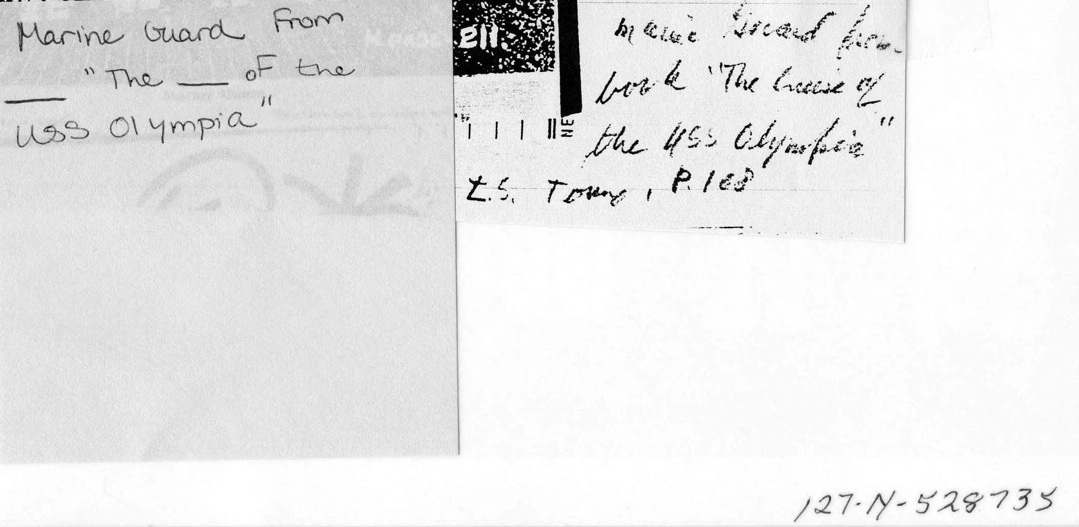 Marine Guard From
"The ___ of the
___
USS Olympia"
ell.
Marine Guard from
book "The Cruise of
the USS Olympia"
L.S. Young, P. 168
127-N-528735